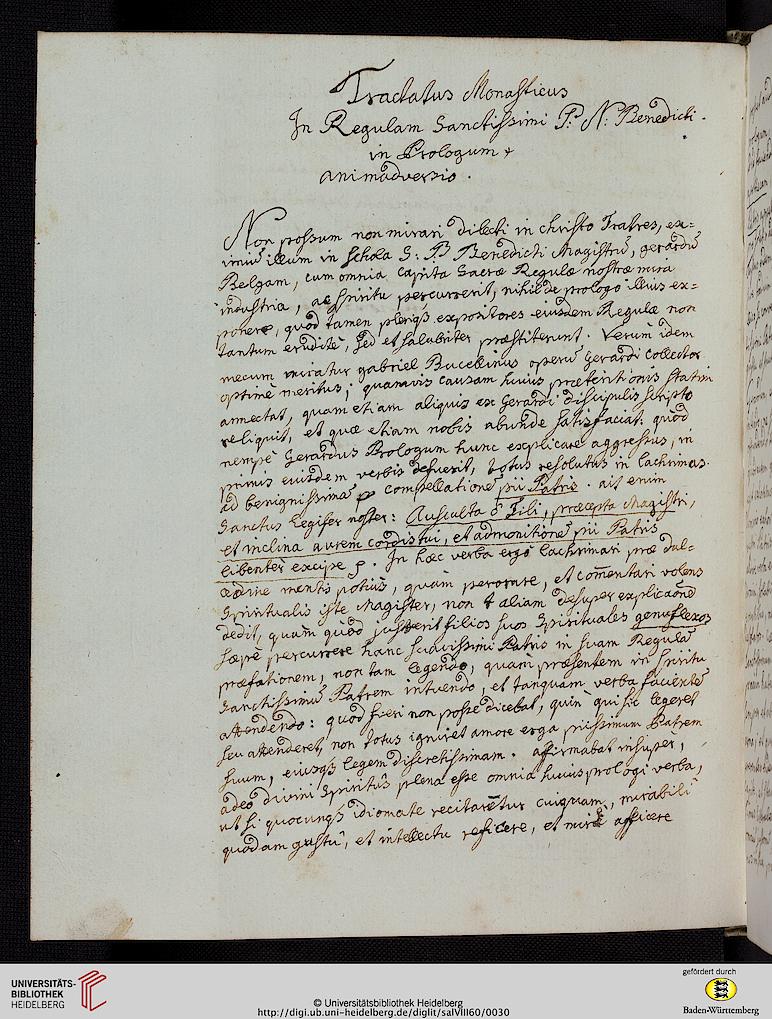 Tractatus Monasticus
In Regulam Sanctissimi P: N: Benedicti.
in Prologum
animadversio.
Non possum non mirari dilecti in christo Fratres, ex=
imiũ illum in schola S: P: Benedicti Magistrũ, gerardũ
Belgam, cum omnia capita Sacræ Regulæ nostræ mira
industria, ac spiritu percurrerit, nihil de prologo illius ex=
ponere, quod tamen pleriqs expositores eiusdem Regulæ non
tantum eruditè, sed et salubriter præstiterunt. Verum idem
mecum miratur gabriel Bucelinus operũ Gerardi collector
optimè meritus; quamvis causam huius præteritionis statim
annectat, quam etiam aliquis ex Gerardi discipulis scripto
reliquit, et quæ etiam nobis abunde satisfaciat. quòd
nempè Gerardus Prologum hunc explicare aggressus, in
primis eiusdem verbis defuerit, totus resolutus in lachrimas
ad benignissimã compellationẽ pii Patris. ait enim
Sanctus legifer noster: Ausculta ô Fili, præcepta Magistri,
et inclina aurem cordis tui, et admonitionẽ pii Patris
libenter excipe. In hæc verba ergò lachrimari præ dul=
cedine mentis potiùs, quàm perorare, et com̃entari volens
Spiritualis iste Magister, non aliam desuper explicaõnẽ
dedit, quàm quòd jusserit filios suos Spirituales genuflexos
sæpè percurrere hanc suavissimi Patris in suam Regulã
præfationem, non tam legendo, quàm præsentem in spiritu
Sanctissimũ Patrem intuendo, et tanquam verba facientẽ
attendendo: quod fieri non posse dicebat, quin qui sic legeret
seu attenderet, non totus igniret amore erga piissimum Patrem
suum, eiusqs legem discretissimam. affirmabat insuper,
adeò divini Spiritûs plena esse omnia huius prologi verba,
ut si quocunqs idiomate recitarẽtur cuiquam, mirabili
quodam gustu, et intellectu reficere, et mirè afficere
UNIVERSITÄTS-
BIBLIOTHEK
HEIDELBERG
© Universitätsbibliothek Heidelberg
http://digi.ub.uni-heidelberg.de/diglit/salVIII60/0030
gefördert durch
Baden-Württemberg